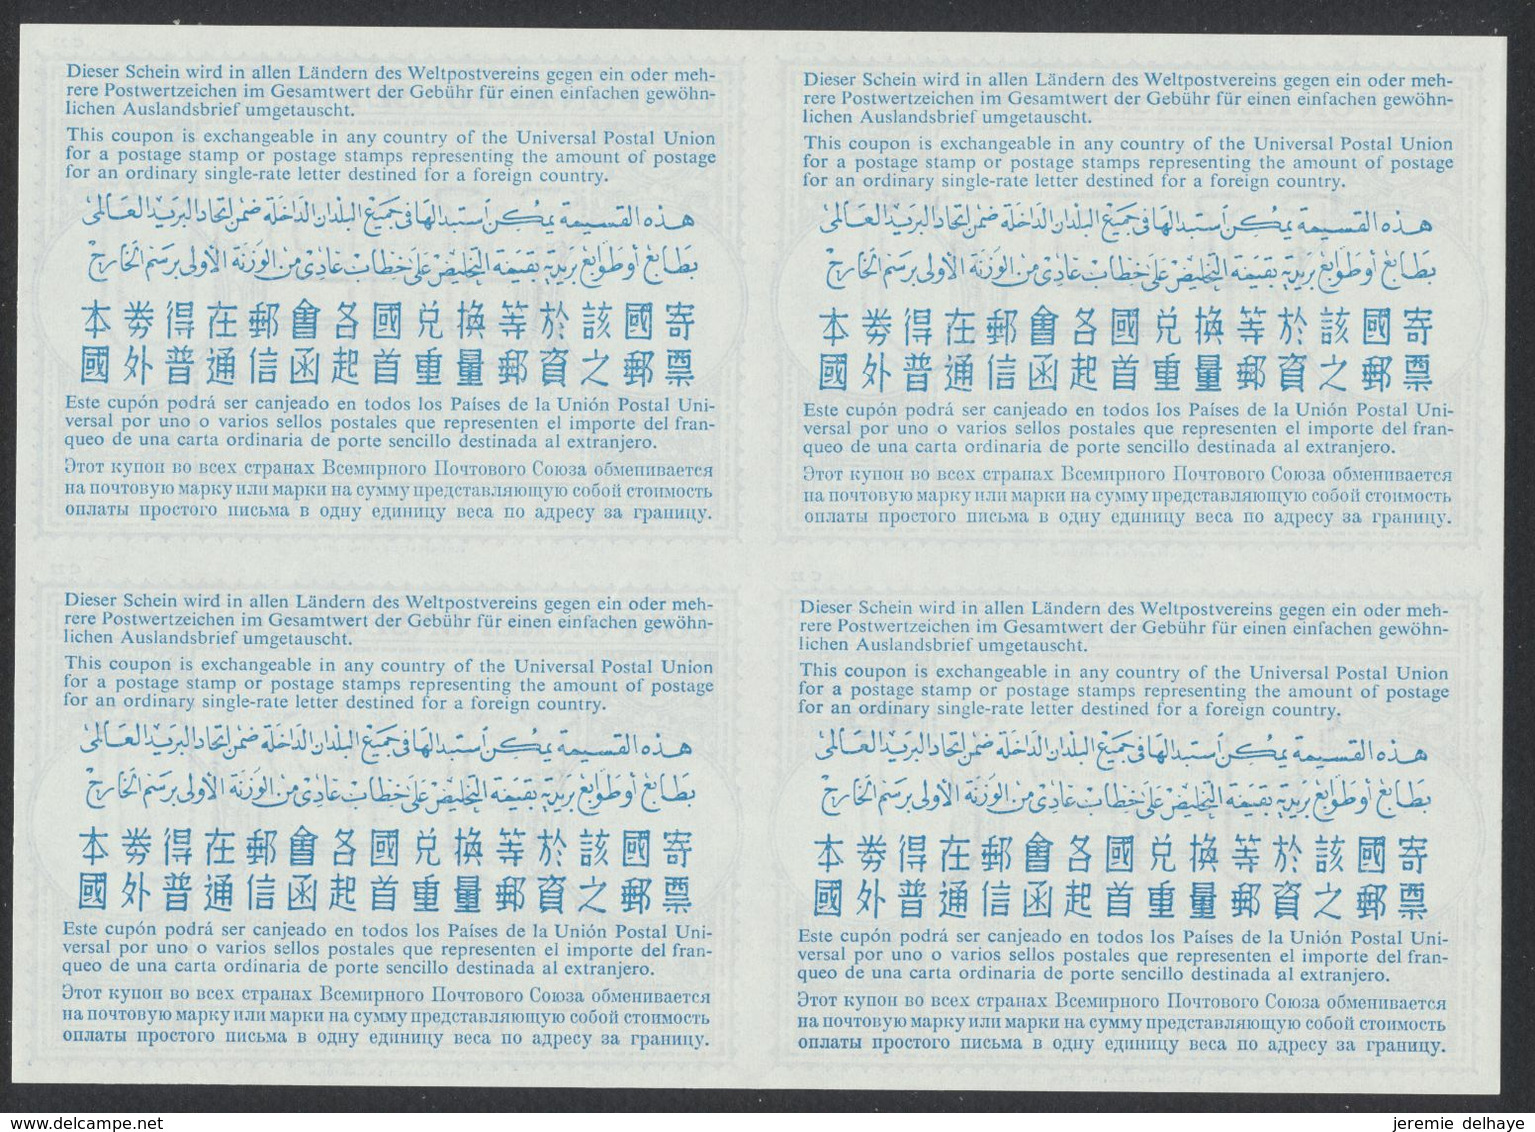 Dieser Schein wird in allen Ländern des Weltpostvereins gegen ein oder meh-
rere Postwertzeichen im Gesamtwert der Gebühr für einen einfachen gewöhn-
lichen Auslandsbrief umgetauscht.
This coupon is exchangeable in any country of the Universal Postal Union
for a postage stamp or postage stamps representing the amount of postage
for an ordinary single-rate letter destined for a foreign country.
هذه القسيمة يمكن استبدالها في جميع البلدان الداخلة ضمن اتحاد البريد العالمى
بطابع أو طوابع بريدية بقيمة التخليص على خطاب عادى من الوزنة الأولى برسم الخارج
本券得在郵會各國兌換等於該國寄
國外普通信函起首重量郵資之郵票
Este cupón podrá ser canjeado en todos los Países de la Unión Postal Uni-
versal por uno o varios sellos postales que representen el importe del fran-
queo de una carta ordinaria de porte sencillo destinada al extranjero.
Этот купон во всех странах Всемирного Почтового Союза обменивается
на почтовую марку или марки на сумму представляющую собой стоимость
оплаты простого письма в одну единицу веса по адресу за границу.
Dieser Schein wird in allen Ländern des Weltpostvereins gegen ein oder meh-
rere Postwertzeichen im Gesamtwert der Gebühr für einen einfachen gewöhn-
lichen Auslandsbrief umgetauscht.
This coupon is exchangeable in any country of the Universal Postal Union
for a postage stamp or postage stamps representing the amount of postage
for an ordinary single-rate letter destined for a foreign country.
هذه القسيمة يمكن استبدالها في جميع البلدان الداخلة ضمن اتحاد البريد العالمى
بطابع أو طوابع بريدية بقيمة التخليص على خطاب عادى من الوزنة الأولى برسم الخارج
本券得在郵會各國兌換等於該國寄
國外普通信函起首重量郵資之郵票
Este cupón podrá ser canjeado en todos los Países de la Unión Postal Uni-
versal por uno o varios sellos postales que representen el importe del fran-
queo de una carta ordinaria de porte sencillo destinada al extranjero.
Этот купон во всех странах Всемирного Почтового Союза обменивается
на почтовую марку или марки на сумму представляющую собой стоимость
оплаты простого письма в одну единицу веса по адресу за границу.
Dieser Schein wird in allen Ländern des Weltpostvereins gegen ein oder meh-
rere Postwertzeichen im Gesamtwert der Gebühr für einen einfachen gewöhn-
lichen Auslandsbrief umgetauscht.
This coupon is exchangeable in any country of the Universal Postal Union
for a postage stamp or postage stamps representing the amount of postage
for an ordinary single-rate letter destined for a foreign country.
هذه القسيمة يمكن استبدالها في جميع البلدان الداخلة ضمن اتحاد البريد العالمى
بطابع أو طوابع بريدية بقيمة التخليص على خطاب عادى من الوزنة الأولى برسم الخارج
本券得在郵會各國兌換等於該國寄
國外普通信函起首重量郵資之郵票
Este cupón podrá ser canjeado en todos los Países de la Unión Postal Uni-
versal por uno o varios sellos postales que representen el importe del fran-
queo de una carta ordinaria de porte sencillo destinada al extranjero.
Этот купон во всех странах Всемирного Почтового Союза обменивается
на почтовую марку или марки на сумму представляющую собой стоимость
оплаты простого письма в одну единицу веса по адресу за границу.
Dieser Schein wird in allen Ländern des Weltpostvereins gegen ein oder meh-
rere Postwertzeichen im Gesamtwert der Gebühr für einen einfachen gewöhn-
lichen Auslandsbrief umgetauscht.
This coupon is exchangeable in any country of the Universal Postal Union
for a postage stamp or postage stamps representing the amount of postage
for an ordinary single-rate letter destined for a foreign country.
هذه القسيمة يمكن استبدالها في جميع البلدان الداخلة ضمن اتحاد البريد العالمى
بطابع أو طوابع بريدية بقيمة التخليص على خطاب عادى من الوزنة الأولى برسم الخارج
本券得在郵會各國兌換等於該國寄
國外普通信函起首重量郵資之郵票
Este cupón podrá ser canjeado en todos los Países de la Unión Postal Uni-
versal por uno o varios sellos postales que representen el importe del fran-
queo de una carta ordinaria de porte sencillo destinada al extranjero.
Этот купон во всех странах Всемирного Почтового Союза обменивается
на почтовую марку или марки на сумму представляющую собой стоимость
оплаты простого письма в одну единицу веса по адресу за границу.
www.delcampe.net
jeremie delhaye